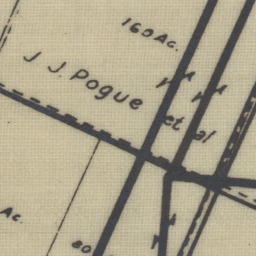 160Ac.
J J. Pogue et al
Ac.
80